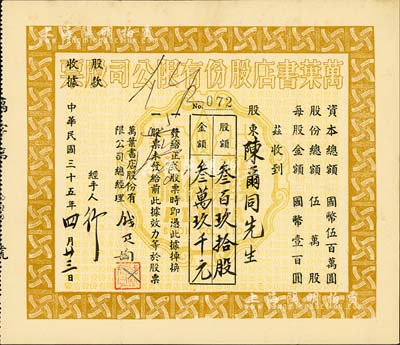 萬葉書店股份有限公司股票
No. 072
資本總額 國幣伍百萬圓
股份總額 伍萬股
每股金額 國幣壹百圓
茲收到
股東陳爾同先生
股額 叁百玖拾股
金額 叁萬玖千元
一發給正式股票時即憑此據掉換
一股票未發給前此據效力等於股票
萬葉書店股份有限公司總經理
經手人
中華民國三十五年四月廿三日
股款收據
上海陽明拍賣